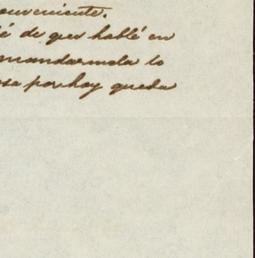 conveniente.
de que hablé en
mandarmela lo
por hoy queda